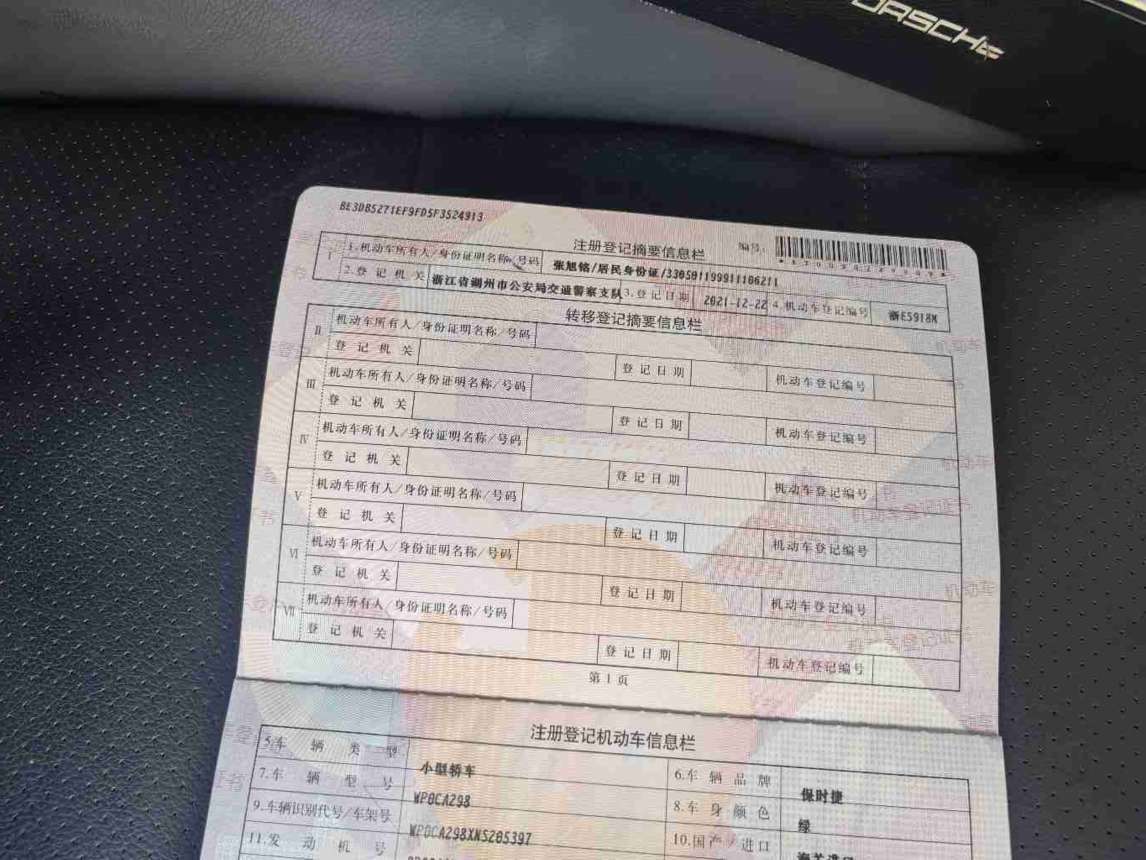 PORSCHE
BE3DB5271EF9FD5F3524913
注册登记摘要信息栏 编号:
I 1.机动车所有人/身份证明名称/号码 张旭铭/居民身份证/330501199911106211
2.登记机关 浙江省湖州市公安局交通警察支队 3.登记日期 2021-12-22 4.机动车登记编号 浙E5918N
转移登记摘要信息栏
II 机动车所有人/身份证明名称/号码
登记机关 登记日期 机动车登记编号
III 机动车所有人/身份证明名称/号码
登记机关 登记日期 机动车登记编号
IV 机动车所有人/身份证明名称/号码
登记机关 登记日期 机动车登记编号
V 机动车所有人/身份证明名称/号码
登记机关 登记日期 机动车登记编号
VI 机动车所有人/身份证明名称/号码
登记机关 登记日期 机动车登记编号
VII 机动车所有人/身份证明名称/号码
登记机关 登记日期 机动车登记编号
第1页
注册登记机动车信息栏
5.车辆类型 小型轿车 6.车辆品牌 保时捷
7.车辆型号 WP0CA298 8.车身颜色 绿
9.车辆识别代号/车架号 WP0CA298XNS205397 10.国产/进口
11.发动机号